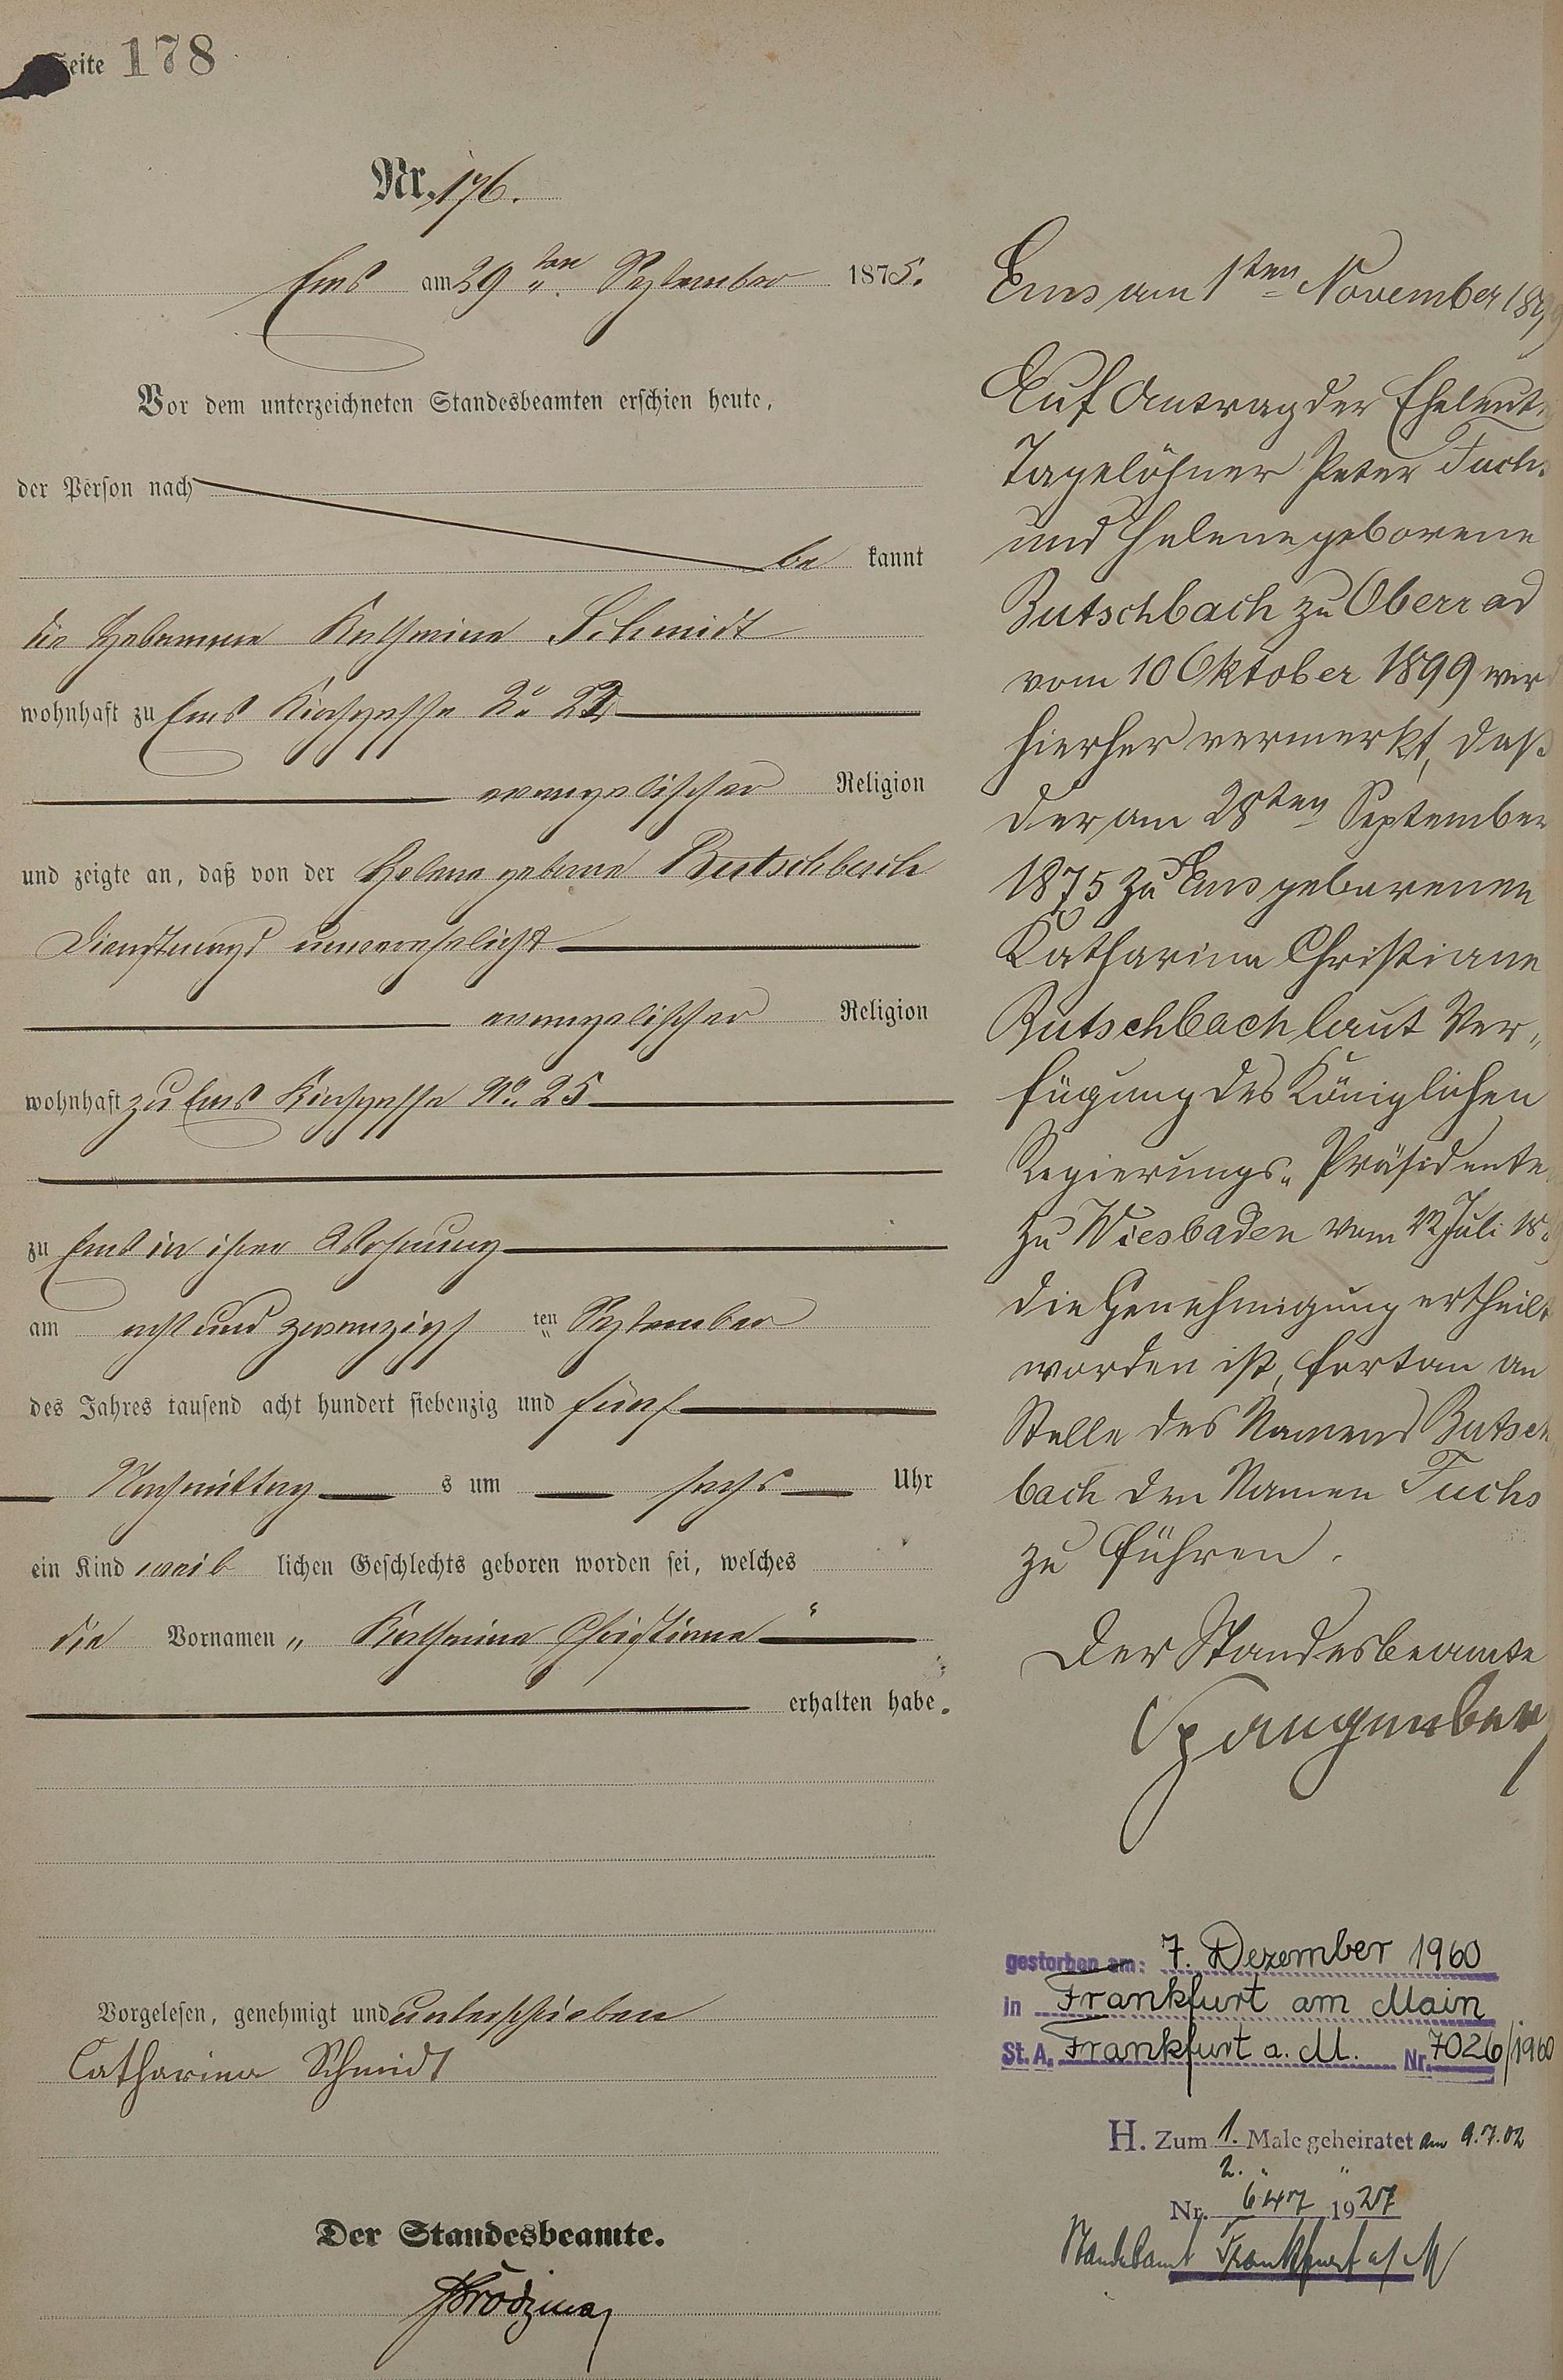 Seite 178
Nr. 176.
Ems am 29ten September 1875.
Vor dem unterzeichneten Standesbeamten erschien heute,
der Person nach
be kannt
die Hebamme Katharina Schmidt
wohnhaft zu Ems Kirchgasse No
evangelischer Religion
und zeigte an, daß von der Helena geborne Butschbach
Dienstmagd unverehelicht
evangelischer Religion
wohnhaft zu Ems Kirchgasse No. 25
zu Ems in ihrer Wohnung
am acht und zwanzigs ten September
des Jahres tausend acht hundert siebenzig und fünf
Nachmittag s um sechs Uhr
ein Kind weib lichen Geschlechts geboren worden sei, welches
die Vornamen „ Katharina Christiana “
erhalten habe.
Vorgelesen, genehmigt und unterschrieben
Catharina Schmidt
Der Standesbeamte.
Ems am 1ten November 1899
Auf Antrag der Eheleute
Tagelöhner Peter Fuchs
und Helene geborene
Butschbach zu Oberrad
vom 10 Oktober 1899 wird
hierher vermerkt, daß
der am 28ten September
1875 zu Ems geborenen
Katharina Christiane
Butschbach laut Ver„
fügung des Königlichen
Regierungs„ Präsidenten
zu Wiesbaden vom 12 Juli 18
die Genehmigung ertheilt
worden ist, fortan an
Stelle des Namens Butsch
bach den Namen Fuchs
zu führen.
Der Standesbeamte
Spangenberg
gestorben am: 7. Dezember 1960
in Frankfurt am Main
St. A. Frankfurt a. M. Nr. 7026/1960
H. Zum 1. Male geheiratet am 9.7.02
2. " "
Nr. 647 1927
Standesamt Frankfurt a/M